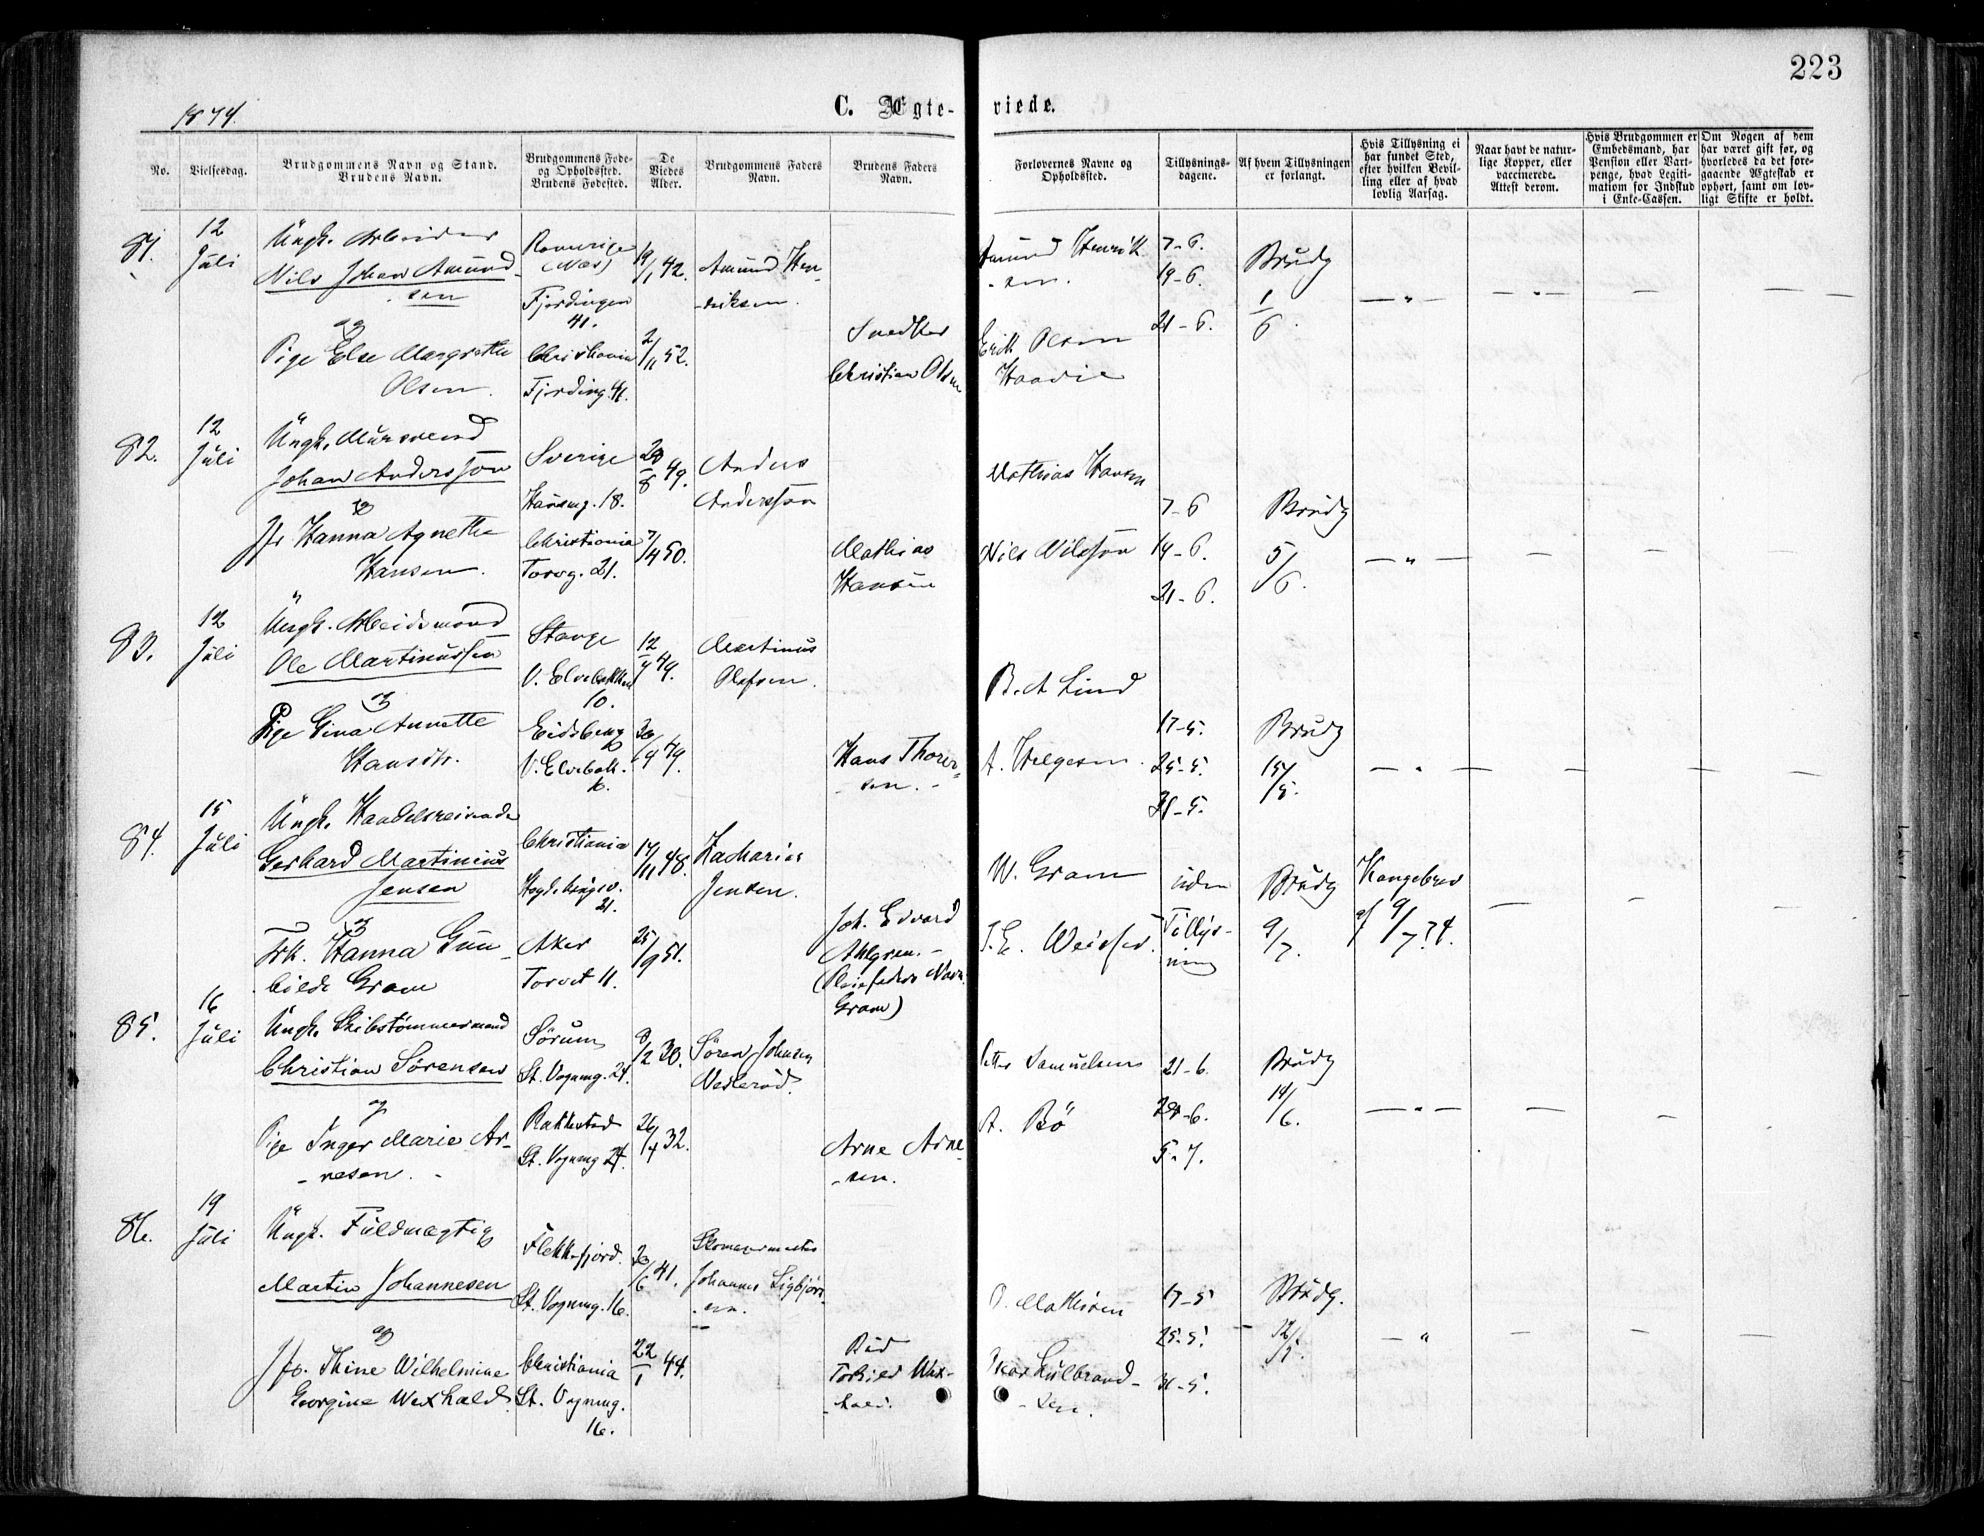 223
1874.
C. Ægte-
viede.
No.
Vielsesdag.
Brudgommens Navn og Stand.
Brudens Navn.
Brudgommens Føde-
og Opholdssted.
Brudens Fødested.
De
Viedes
Alder.
Brudgommens Faders
Navn.
Brudens Faders
Navn.
Forlovernes Navne og
Opholdssted.
Tillysnings-
dagene.
Af hvem Tillysningen
er forlangt.
Hvis Tillysning ei
har fundet Sted,
efter hvilken Bevil-
ling eller af hvad
lovlig Aarsag.
Naar havt de natur-
lige Kopper, eller
vaccinerede.
Attest derom.
Hvis Brudgommen er
Embedsmand, har
Pension eller Vart-
penge, hvad Legiti-
mation for Indskud
i Enke-Cassen.
Om Nogen af dem
har været gift før, og
hvorledes da det fore-
gaaende Ægteskab er
ophørt, samt om lov-
ligt Skifte er holdt.
81.
12
Juli
Ungk. Arbeider
Nils Johan Amund-
sen
og
Pige Else Margrethe
Olsen.
Romerige
(Næs)
Fjerdingen
41.
Christiania
Fjerding. 41.
19/1 42.
2/11 52.
Amund Hen-
riksen.
Snedker
Christian Olsen
Amund Henrik-
sen.
Erik Olsen
7-6.
19-6.
21-6.
Brudg
1/6.
82.
12
Juli
Ungk. Mursvend
Johan Andersson
og
Jfr Hanna Agnethe
Hansen.
Sverige
Hausmg. 18.
Christiania
Torvg. 21.
49.
7/4 50.
Anders
Andersson
Mathias
Hansen
Mathias Hansen
Nils Nilsson
7-6
14-6.
21-6.
Brudg
5/6.
83.
12
Juli
Ungk. Arbeidsmand
Ole Martinussen
og
Pige Gina Annette
Hansdtr.
Stange
V. Elvebakken
10.
Eidsberg
V. Elvebak.
12/4 49.
49.
Martinus
Olofsen.
Hans Thorer-
sen.
B. A Lind
A. Helgesen.
17-5.
25-5.
31-5.
Brudg
15/5.
84.
15
Juli
Ungk. Handelsreisende
Gerhard Martinius
Jensen
og
Frk. Hanna Gun-
hilde Gram
Christiania
21.
Aker
Torvet 11.
17/11 48.
25/9 51.
Zacharias
Jensen.
Joh. Edvard
Ahlgren.
(Pleiefaders Navn
Gram)
W. Gram
uden
Tillys-
ning
Brudg
9/7.
Kongebrev
af 9/7 74.
85.
16
Juli
Ungk. Skibstømmermand
Christian Sørensen
og
Pige Inger Marie Ar-
nesen.
Sørum
St. Vognmg. 24.
Rakkestad
St. Vognmg 24.
30.
32.
Søren Johnsen
Arne Arne-
sen.
Samuelsen
A. Bö
21-6.
28-6.
5-7.
Brudg
14/6.
86.
19
Juli
Ungk. Fuldmægtig
Martin Johannesen
og
Jfr. Thine Wilhelmine
Georgine Wexhald.
Flekkefjord.
St. Vognmg. 16.
Christiania
St. Vognmg.
16.
41.
22/1 44.
Skomagermester
Johannes Sigbjørn-
sen.
Tobias Wex-
hald.
Mathisen
17-5
25-5.
31-5.
Brudg.